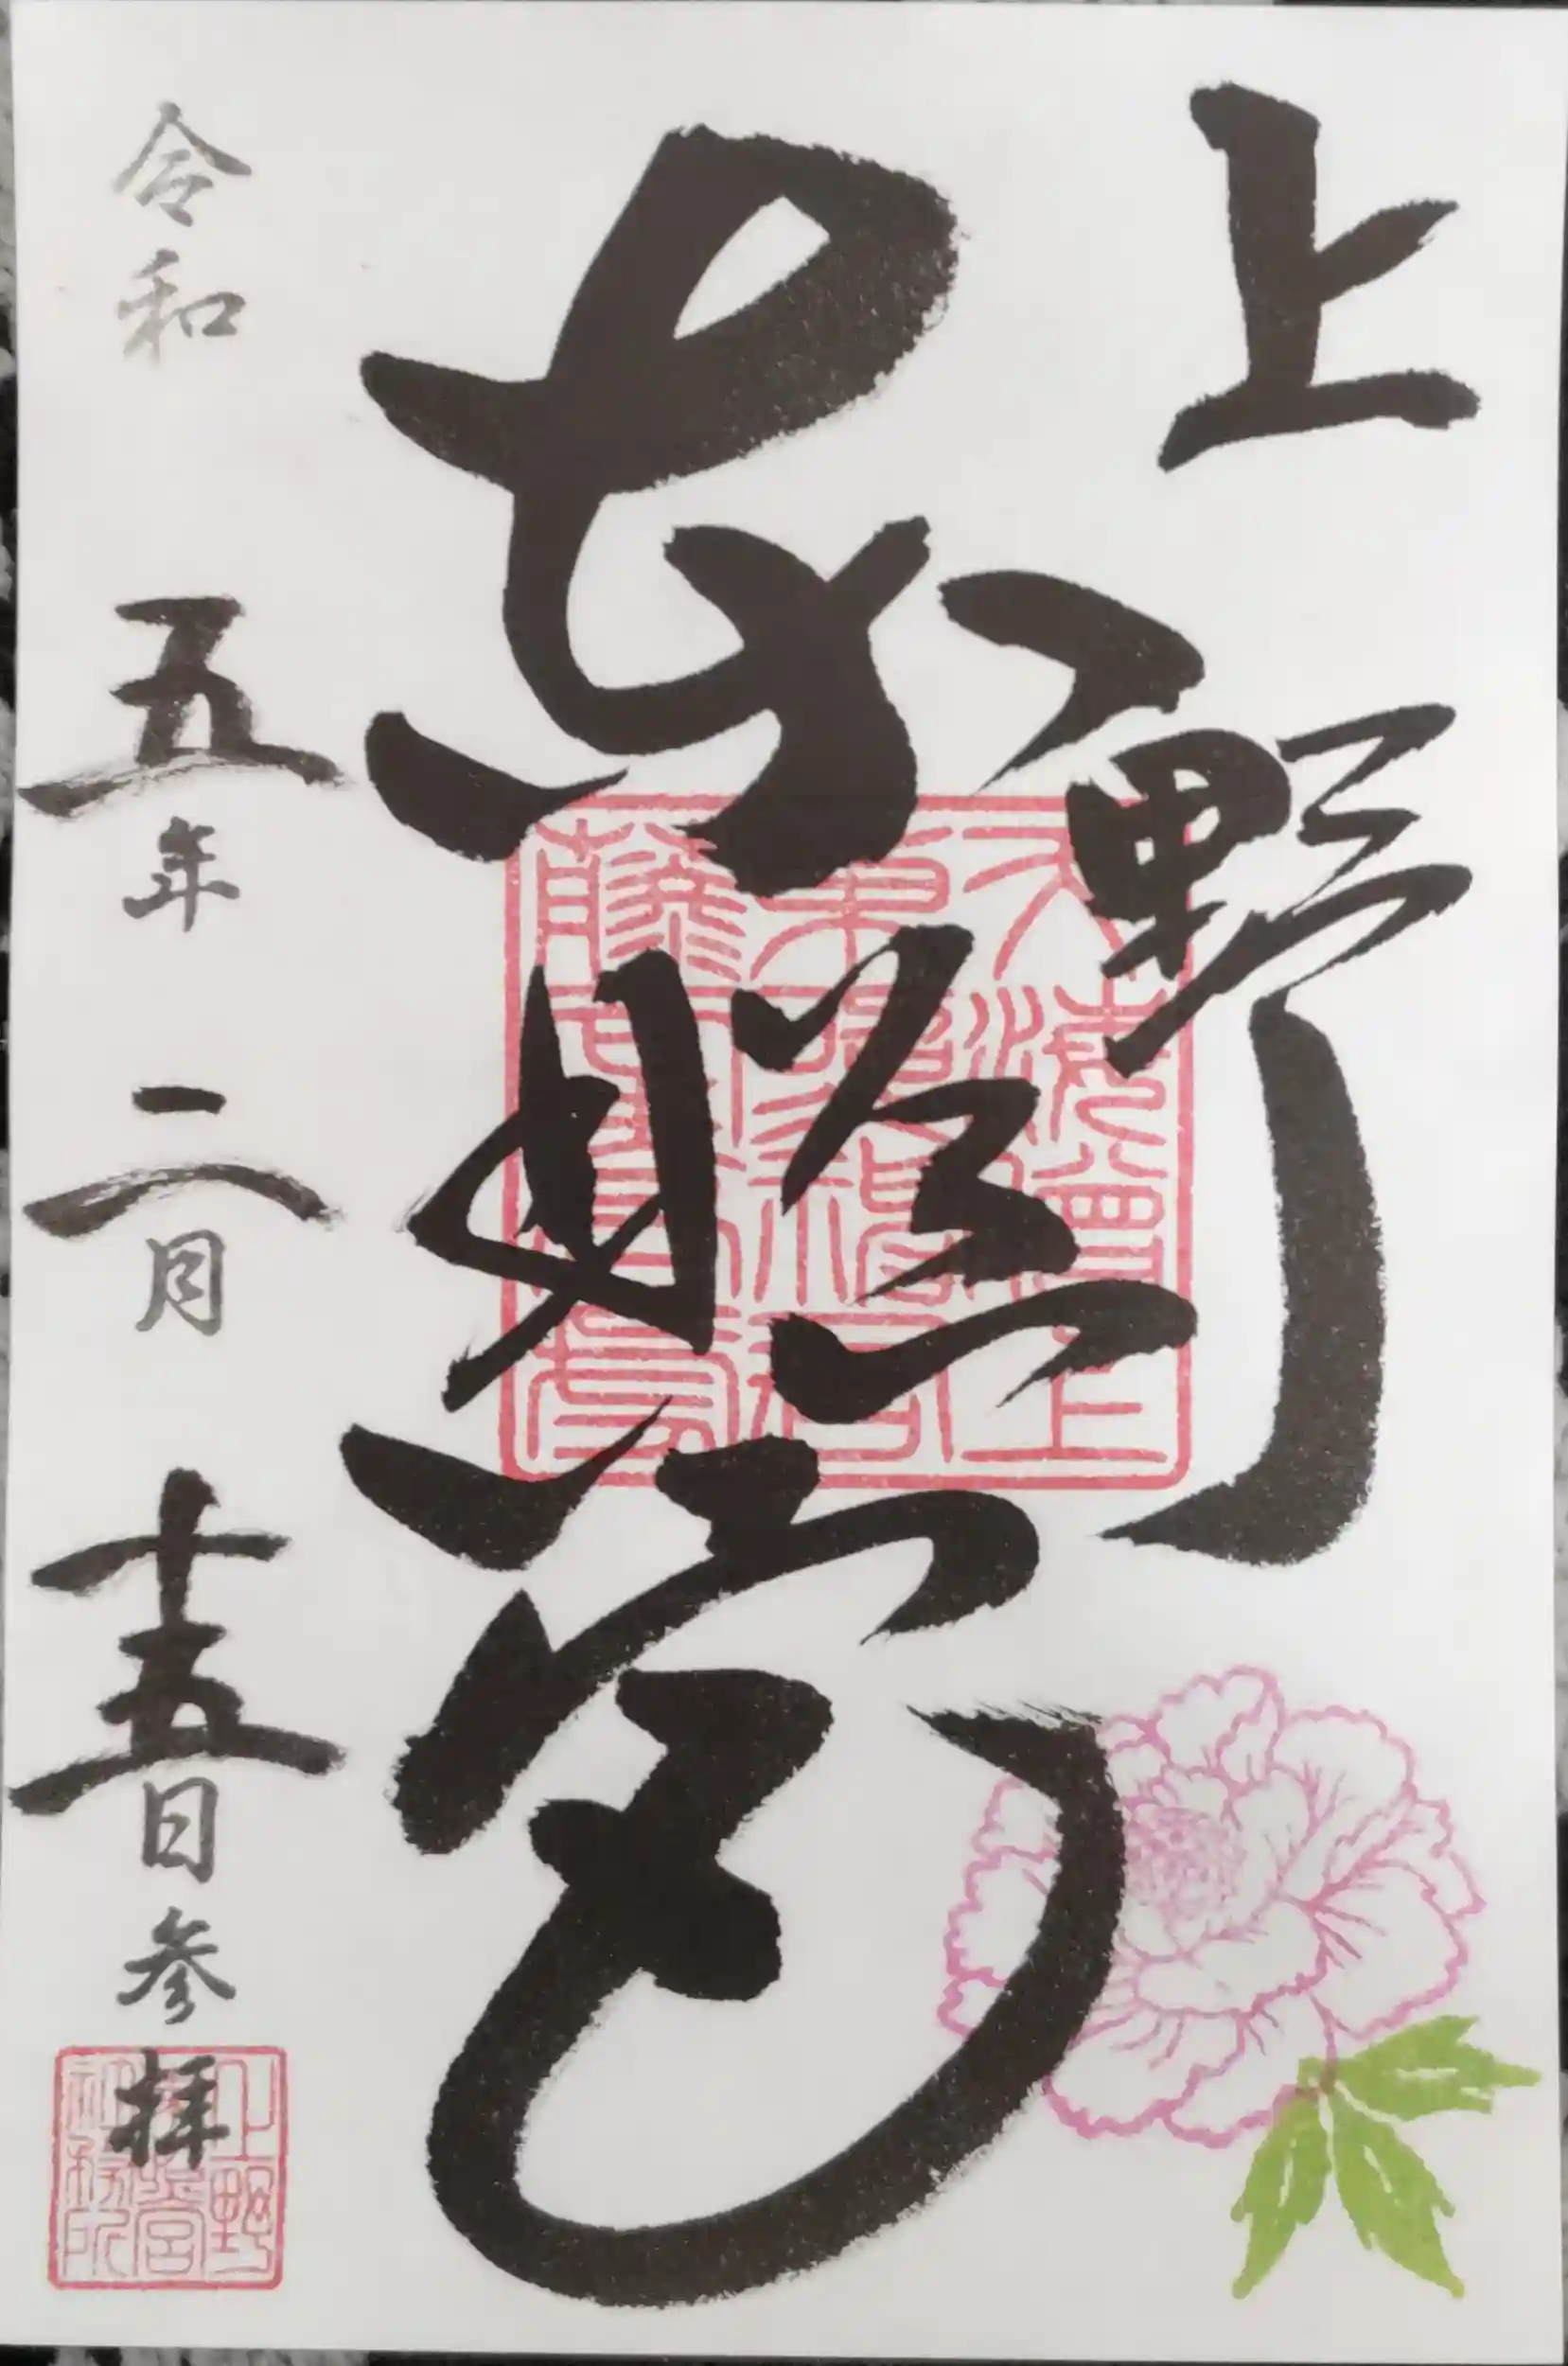 上野
東照宮
令和五年二月十五日参拝
上野東照宮社務所